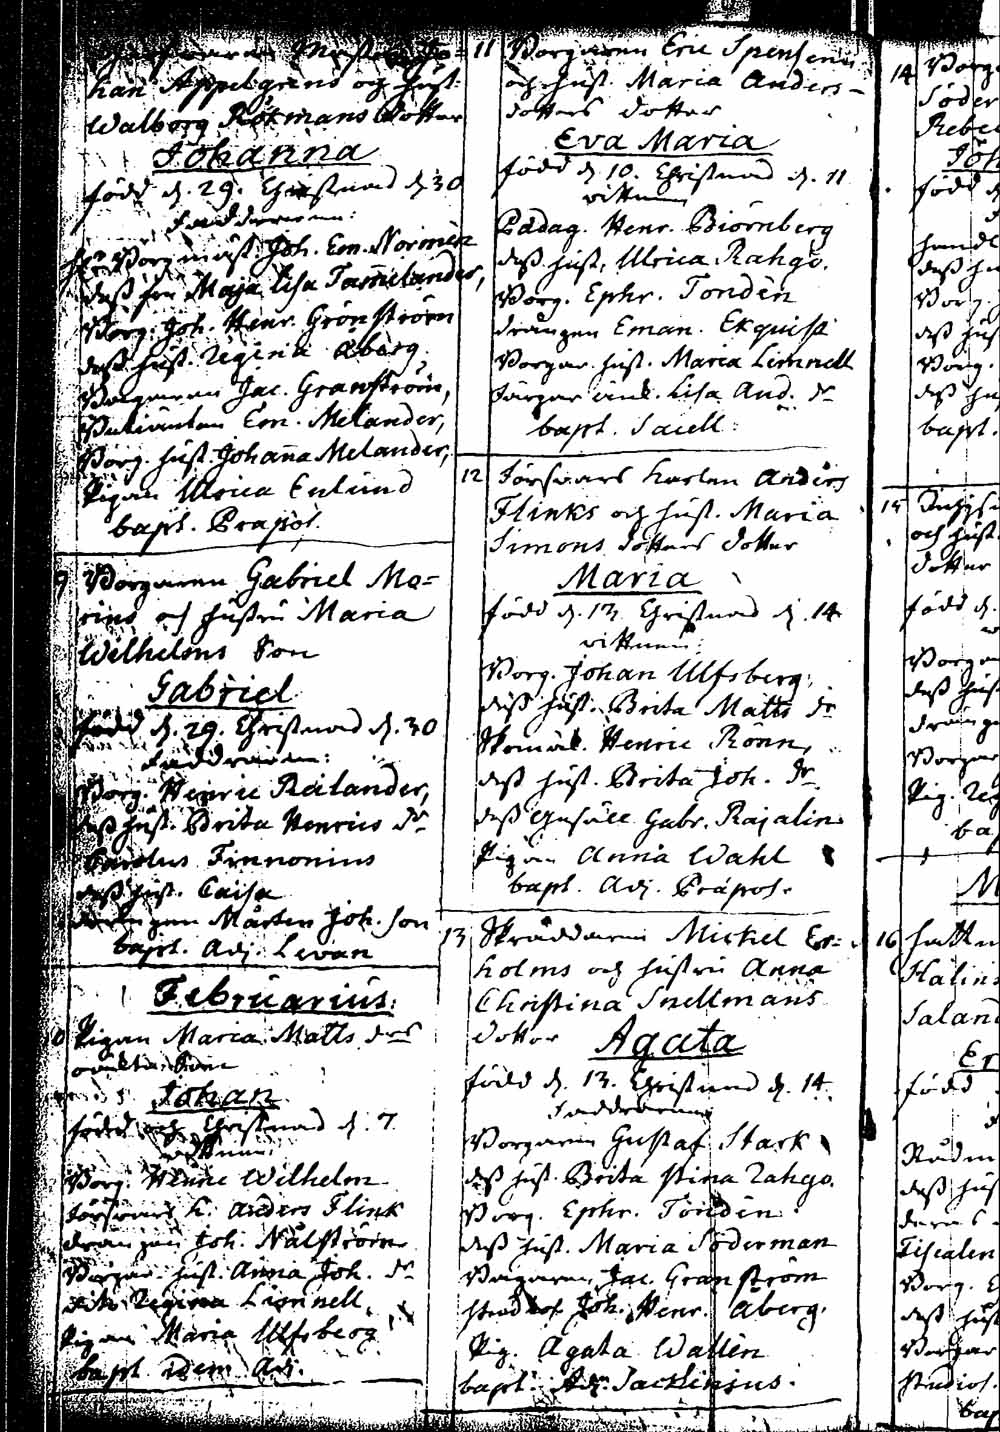 han Appelgrens och Hust.
Walborg Rökmans dotter
Johanna
född d. 29. Christnad d. 30
Faddrarna:
Borgmäst. Joh. Em. Normén
dess fru Maja Lisa Tamelander,
Borg. Joh. Henr. Grönström
dess hust. Regina Åberg
Borgaren Jac. Granström,
Em. Melander,
Borg. hust. Johanna Melander,
Pigan Ulrica Enlund
bapt. Præpos.
9 Borgaren Gabriel Mo=
rins och hustru Maria
Wilhelms Son
Gabriel
född d. 29. Christnad d. 30
Faddrarna:
Borg. Henric Reilander,
dess hust. Brita Henrics dr
Carolus Finnonius
dess hust. Caisa
drängen Mårten Joh. son
bapt. Adj. Levan
Februarius.
Pigan Maria Matts drs
oäkta Son
Johan
född och Christnad d. 7
vittnen:
Borg. Henric Wilhelm
Försvars k. Anders Flink
drängen Joh. Nålström
Borgar. hust. Anna Joh. dr
Regina Limnell,
Pigan Maria Ulfsberg
bapt. idem Adj.
11 Borgaren Eric Spenseius
och hust. Maria Anders-
dotters dotter
Eva Maria
född d. 10. Christnad d. 11
vittnen
Pädag. Henr. Biörnberg
dess hust. Ulrica Rahgo.
Borg. Ephr. Tondén
drängen Eman. Ekquist
Borgar hust. Maria Limnell
Lisa And. dr
bapt. Sacell:
12 Försvars karlen Anders
Flinks och hust. Maria
Simons dotters dotter
Maria
född d. 13. Christnad d. 14
vittnen:
Borg. Johan Ulfsberg,
dess hust. Brita Matts dr
Skomak. Henric Ronn,
dess hust. Brita Joh. dr
dess Gesäll Gabr. Rajalin
Pigan Anna Wahl
bapt. Adj. Præpos.
13 Skräddaren Mickel Er=
holms och hustru Anna
Christina Snellmans
dotter Agata
född d. 13. Christnad d. 14
Faddrarna
Borgaren Gustaf Stark
dess hust. Brita Stina Rahgo.
Borg. Ephr. Tondén
dess hust. Maria Söderman
Borgaren Jac. Granström
Joh. Henr. Åberg.
Pig. Agata Wallén
bapt. Adj. Jachenius.
14 Borg
Söder
Rebe
Joh
född d
handl
dess hu
Borg.
dess hus
Borg.
dess hu
bapt.
15
och hust
dotter
född d.
Borgar
dess hus
dränge
Borgar
Pig. Re
ba
M
16
Halins
Saland
Er
född
Rådm
dess hus
Fiscalen
Borg. E
dess hust
Borgar
studios.
bap